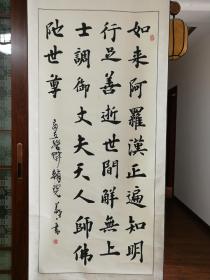 如来阿羅漢正遍知明
行足善逝世間解無上
士調御丈夫天人師佛
陁世尊